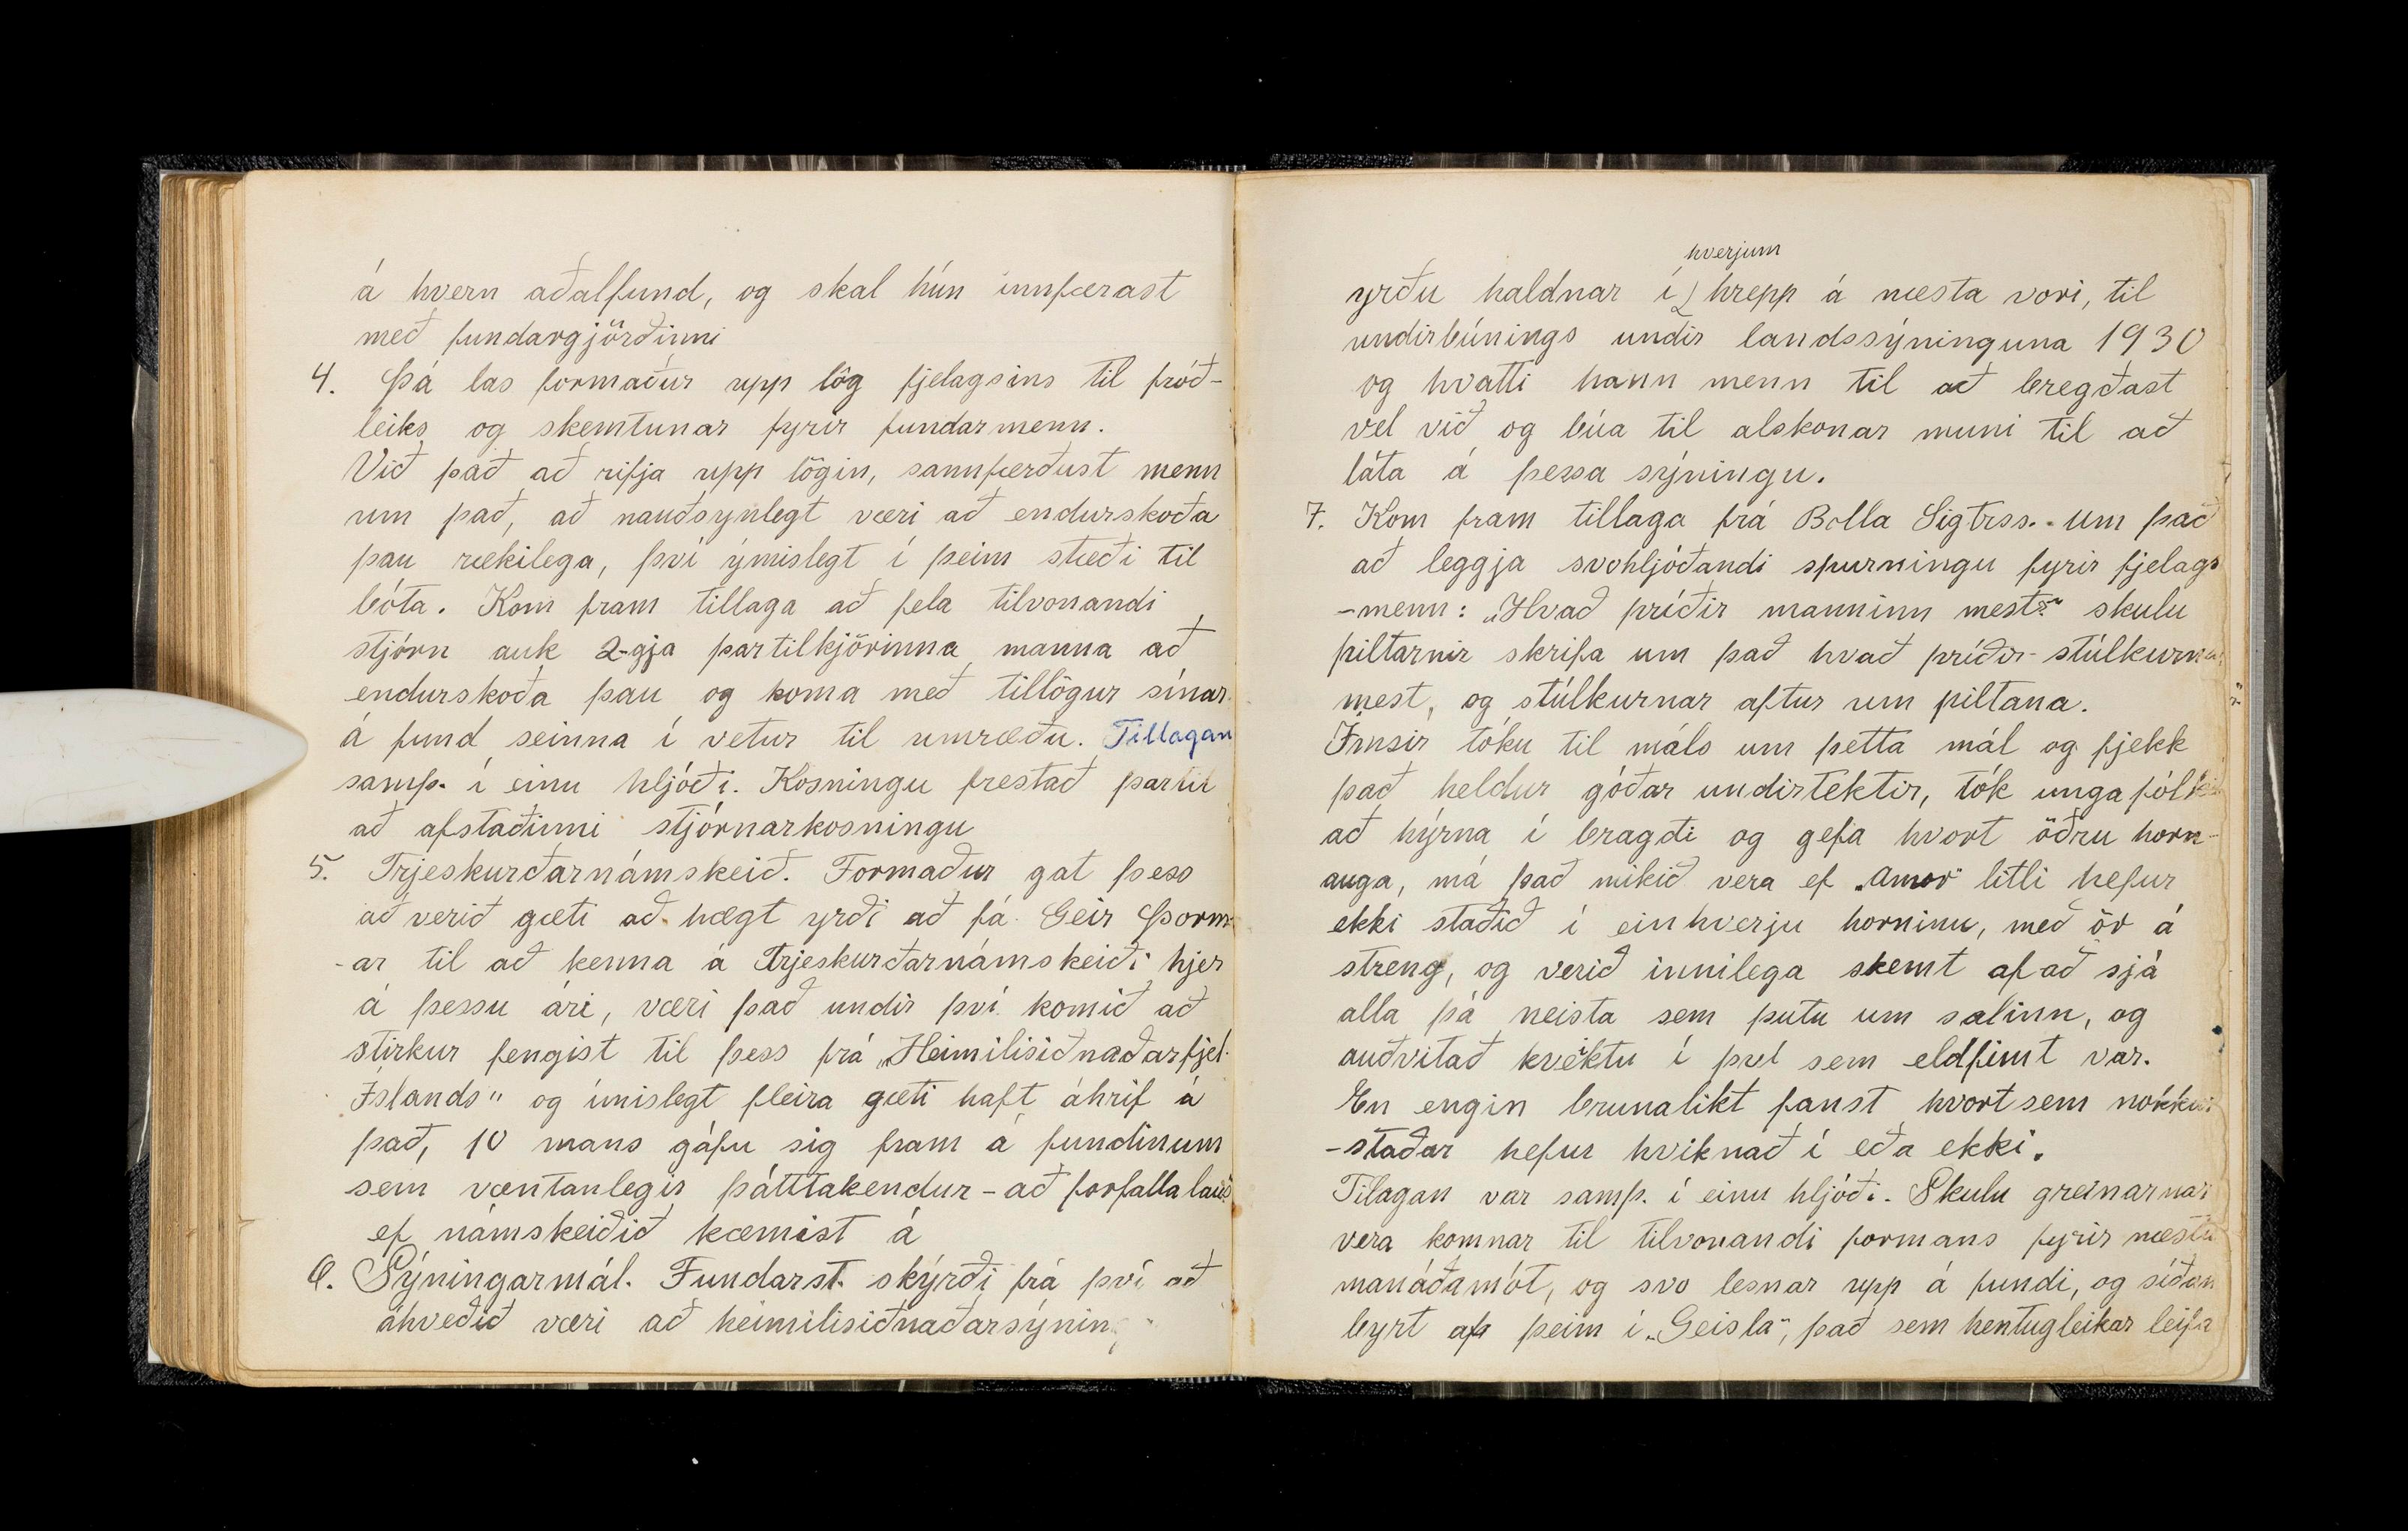 á hvern aðalfund, og skal hún innfærast
með fundargjörðinni
4. Þá las formaður upp lög fjelagsins til fróð-
leiks og skemtunar fyrir fundarmenn.
Við það að rifja upp lögin, sannfærðust menn
um það, að nauðsynlegt væri að endurskoða
þau rækilega, því ýmislegt í þeim stæði til
bóta. Kom fram tillaga að fela tilvonandi
stjórn auk 2-gja þartilkjörinna manna að
endurskoða þau og koma með tillögur sínar
á fund seinna í vetur til umræðu. Tillagan
samþ. í einu hljóði. Kosningu frestað þartil
að afstaðinni stjórnarkosningu
5. Trjeskurðarnámskeið. Formaður gat þess
að verið gæti að hægt yrði að fá Geir Þorm-
-ar til að kenna á Trjeskurðarnámskeiði hjer
á þessu ári, væri það undir því komið að
stirkur fengist til þess frá „Heimilisiðnaðarfjel.
Íslands" og ímislegt fleira gæti haft áhrif á
það, 10 mans gáfu sig fram á fundinum
sem væntanlegir þátttakendur - að forfallalausu
ef námskeiðið kæmist á
6. Sýningarmál. Fundarst. skýrði frá því að
áhveðið væri að heimilisiðnaðarsýning
hverjum
yrðu haldnar í hrepp á næsta vori, til
undirbúnings undir landssýninguna 1930
og hvatti hann menn til að bregðast
vel við og búa til alskonar muni til að
láta á þessa sýningu.
7. Kom fram tillaga frá Bolla Sigtrss. um það
að leggja svohljóðandi spurningu fyrir fjelags
-menn: „Hvað príðir manninn mest?" skulu
piltarnir skrifa um það hvað príðir stúlkurnar
mest, og stúlkurnar aftur um piltana.
Ímsir tóku til máls um þetta mál og fjekk
það heldur góðar undirtektir, tók unga fólkið
að hýrna í bragði og gefa hvort öðru horn-
auga, má það mikið vera ef „Amor" litli hefur
ekki staðið í einhverju horninu, með ör á
streng, og verið innilega skemt af að sjá
alla þá neista sem þutu um salinn, og
auðvitað kveiktu í því sem eldfimt var.
En engin brunalikt fanst hvort sem nokkur
-staðar hefur hviknað í eða ekki.
Tilagan var samþ. í einu hljóði. Skulu greinarnar
vera komnar til tilvonandi formans fyrir næstu
manáðamót, og svo lesnar upp á fundi, og síðan
byrt af þeim í „Geisla", það sem hentugleikar leifa